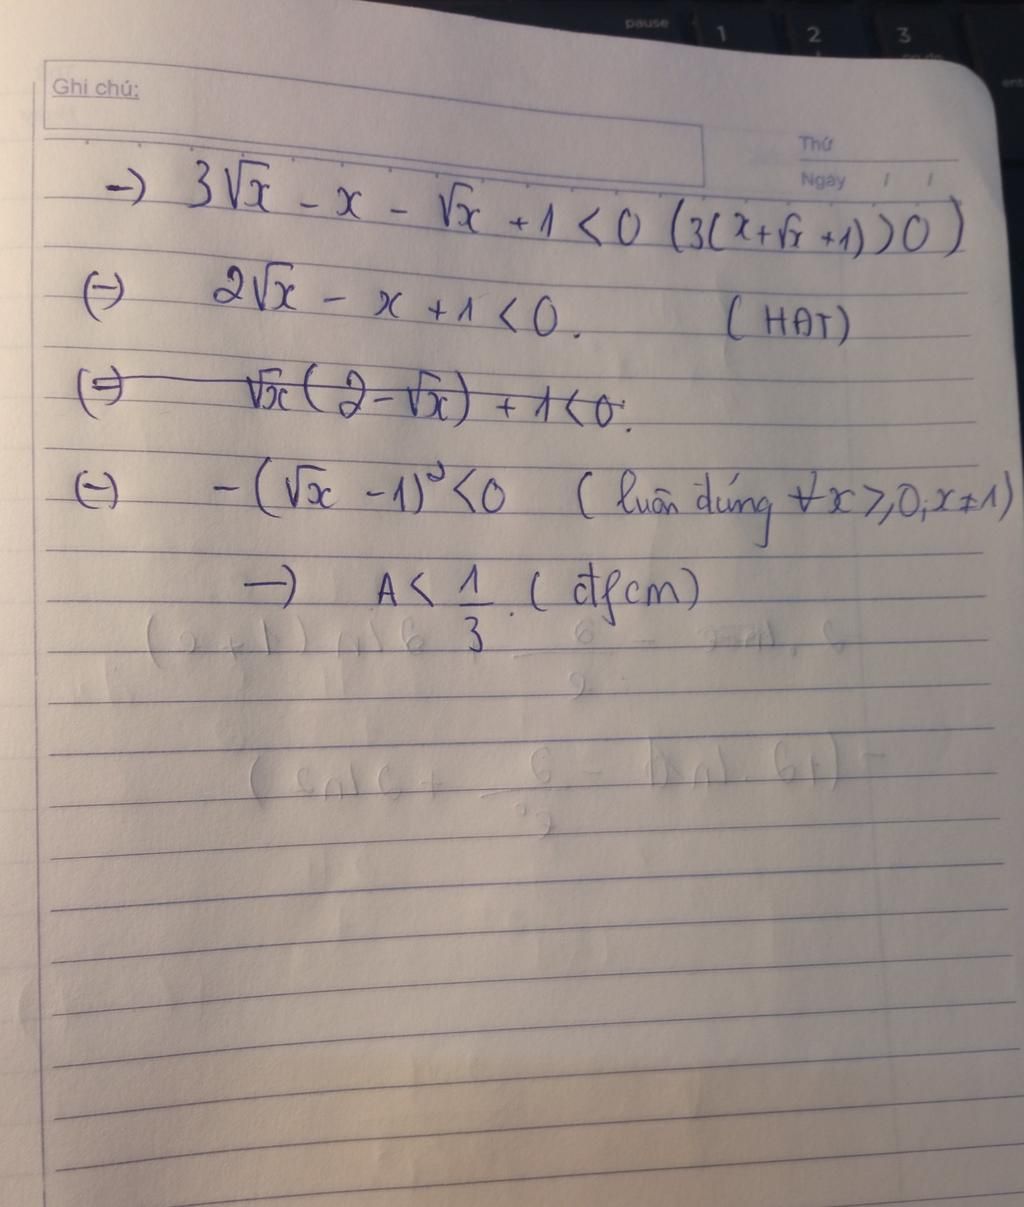 pause
1 2 3
Ghi chú:
Thứ
Ngày / /
→) 3√x - x - √x + 1 < 0 (3(x+√x+1)>0)
(=) 2√x - x + 1 < 0. (HAT)
(=) √x(2-√x) + 1 < 0.
(=) -(√x - 1)² < 0 (luôn dúng ∀x ≥ 0, x ≠ 1)
→) A < 1/3. (đfcm)